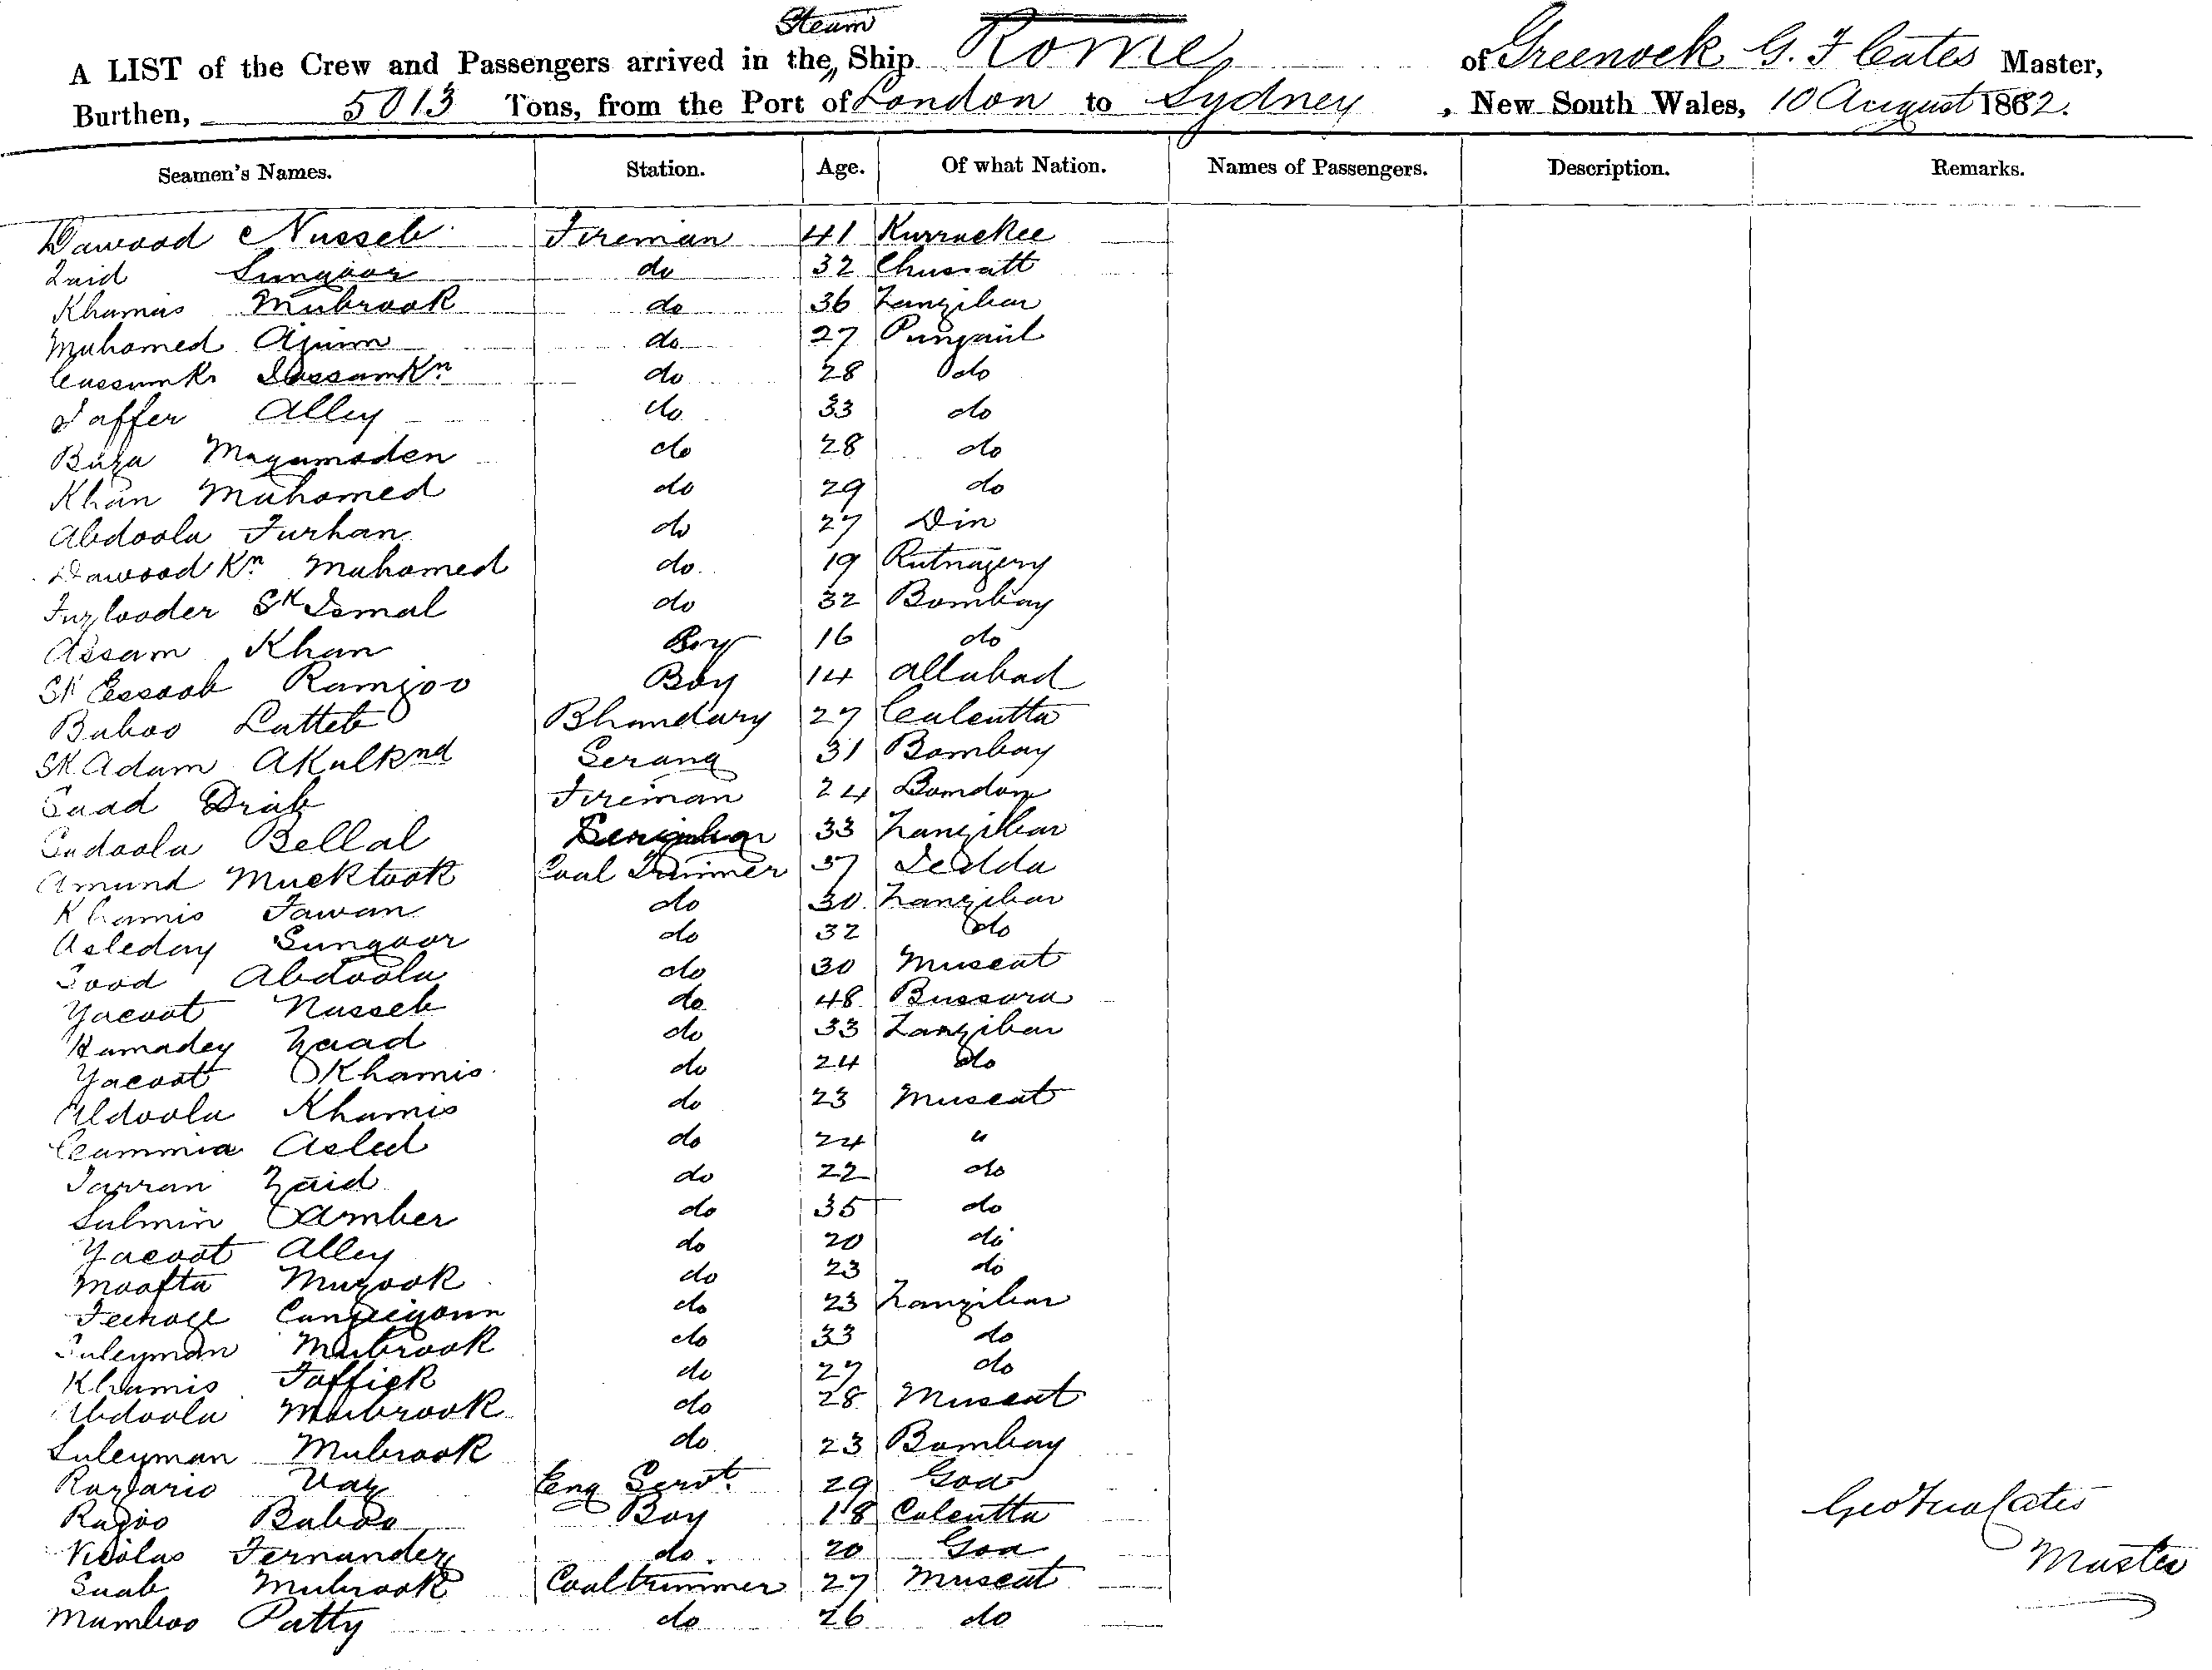 Steam
A LIST of the Crew and Passengers arrived in the Ship Rome of Greenock G. F Cates Master,
Burthen, 5013 Tons, from the Port of London to Sydney, New South Wales, 10 August 1882.
Seamen's Names. Station. Age. Of what Nation. Names of Passengers. Description. Remarks.
Dawood Nusseb Fireman 41 Kurrachee
Zaid Sungoor do 32
Khamis Mubrook do 36 Zanzibar
Mahomed Ajum do 27 Punjaub
Cassumkn do 28 do
Jaffer Alley do 33 do
Buza Mayamoden do 28 do
Khan Mahomed do 29 do
Abdoola Furhan do 27 Din
Dawood Kn Mahomed do 19 Rutnagery
Fuzlooder Sk Ismal do 32 Bombay
Assam Khan Boy 16 do
Sk Essoob Ramjoo Boy 14 Allabad
Baboo Lutteb Bhandary 27 Calcutta
Sk Adam Serang 31 Bombay
Saad Fireman 24
Sudoola Bellal 33 Zanzibar
Amund Mucktook Coal Trimmer 37 Jedda
Khamis Fawan do 30 Zanzibar
Asleday Sungoor do 32 do
Sood Abdoola do 30 Muscat
Yacoot Nusseb do 48 Bussora
Hamadey Zaad do 33 Zanzibar
Yacoot Khamis do 24 do
Abdoola Khamis do 23 Muscat
Cammia Asled do 24 "
Farran Zaid do 22 do
Sulmin Amber do 35 do
Yacoot Alley do 20 do
Moofta Muzook do 23 do
do 23 Zanzibar
Suleyman Mubrook do 33 do
Khamis Toffick do 27 do
Abdoola Mubrook do 28 Muscat
Suleyman Mubrook do 23 Bombay
Rozario Vaz Eng Servt. 29 Goa
Rajoo Baboo Boy 18 Calcutta
Nicolas Fernandez do. 20 Goa
Suab Mubrook Coaltrimmer 27 Muscat
Mamboo Patty do 26 do
Cates
Master